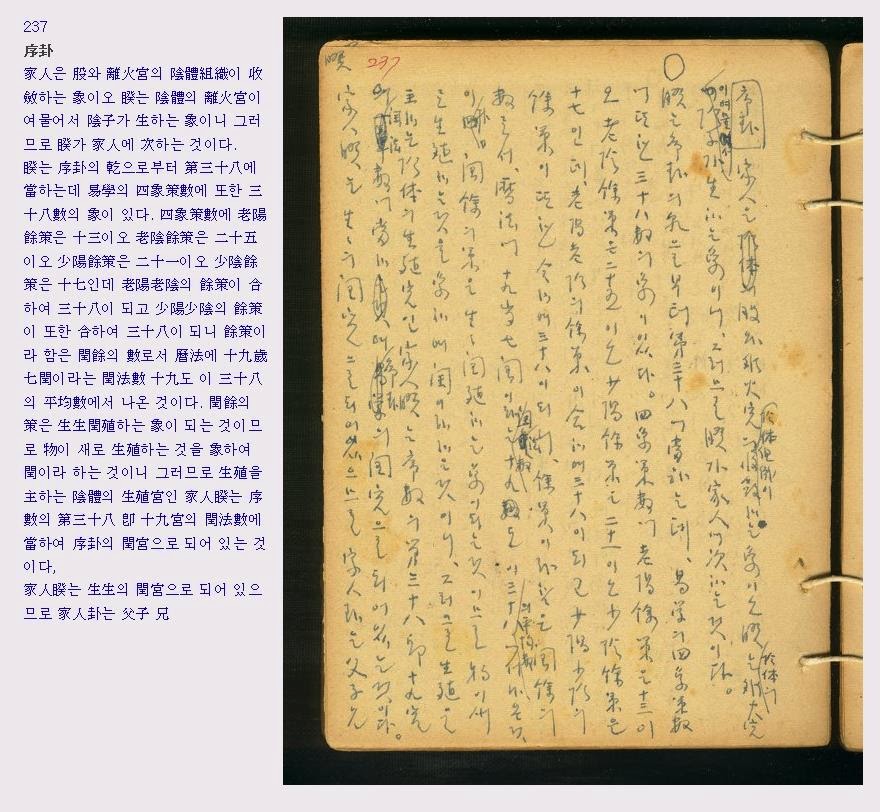 237
序卦
家人은 股와 離火宮의 陰體組織이 收
斂하는 象이오 睽는 陰體의 離火宮이
여물어서 陰子가 生하는 象이니 그러
므로 睽가 家人에 次하는 것이다.
睽는 序卦의 乾으로부터 第三十八에
當하는데 易學의 四象策數에 또한 三
十八數의 象이 있다. 四象策數에 老陽
餘策은 十三이오 老陰餘策은 二十五
이오 少陽餘策은 二十一이오 少陰餘
策은 十七인데 老陽老陰의 餘策이 合
하여 三十八이 되고 少陽少陰의 餘策
이 또한 合하여 三十八이 되니 餘策이
라 함은 閏餘의 數로서 曆法에 十九歲
七閏이라는 閏法數 十九도 이 三十八
의 平均數에서 나온 것이다. 閏餘의
策은 生生閏殖하는 象이 되는 것이므
로 物이 새로 生殖하는 것을 象하여
閏이라 하는 것이니 그러므로 生殖을
主하는 陰體의 生殖宮인 家人睽는 序
數의 第三十八 卽 十九宮의 閏法數에
當하여 序卦의 閏宮으로 되어 있는 것
이다,
家人睽는 生生의 閏宮으로 되어 있으
므로 家人卦는 父子 兄
睽 237
序卦 家人은 股와 離火宮의 陰體組織이 하는 象이오 睽는 陰體의 離火宮
이 여물어서 陰子가 生하는 象이니, 그러므로 睽가 家人에 次하는 것이다.
睽는 序卦의 乾으로부터 第三十八에 當하는데, 易學의 四象策數
에 또한 三十八數의 象이 있다. 四象策數에 老陽餘策은 十三이
오 老陰餘策은 二十五이오 少陽餘策은 二十一이오 少陰餘策은
十七인데, 老陽老陰의 餘策이 合하여 三十八이 되고 少陽少陰의
餘策이 또한 合하여 三十八이 되니, 餘策이라 함은 閏餘의
數로서, 曆法에 十九歲七閏이라는 閏法數 十九도 이 三十八의 平均數에서 나온
것이다. 閏餘의 策은 生生閏殖하는 象이 되는 것이므로 物이 새
로 生殖하는 것을 象하여 閏이라 하는 것이니, 그러므로 生殖을
主하는 陰体의 生殖宮인 家人睽는 序數의 第三十八 卽 十九宮
의 閏法數에 當하여 序卦의 閏宮으로 되어 있는 것이다.
家人睽는 生生의 閏宮으로 되어 있으므로 家人卦는 父子兄